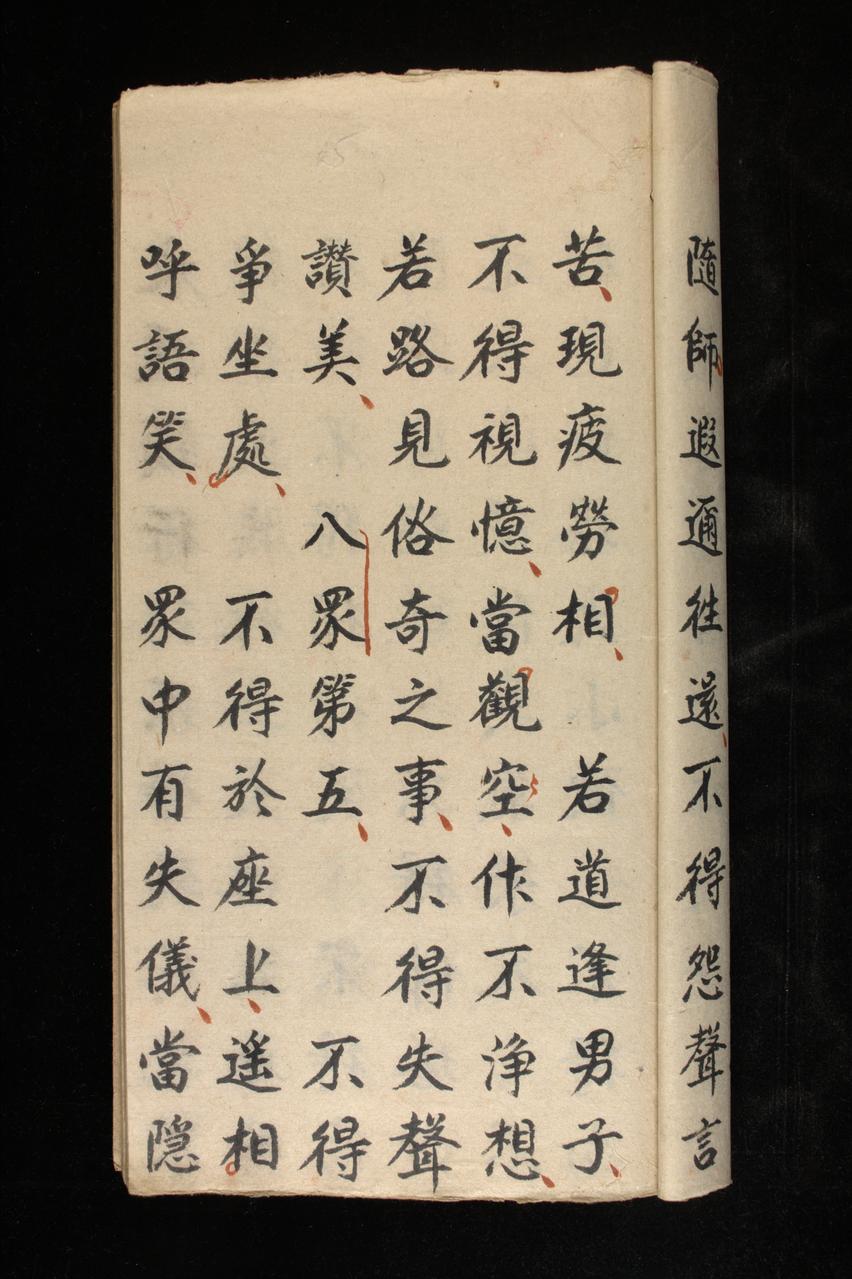 隨師遐邇往還不得怨聲言
苦現疲勞相　若道逢男子
不得視憶當觀空作不淨想
若路見俗奇之事不得失聲
讃美　入眾第五　不得
爭坐處　不得於座上遥相
呼語笑　眾中有失儀當隱